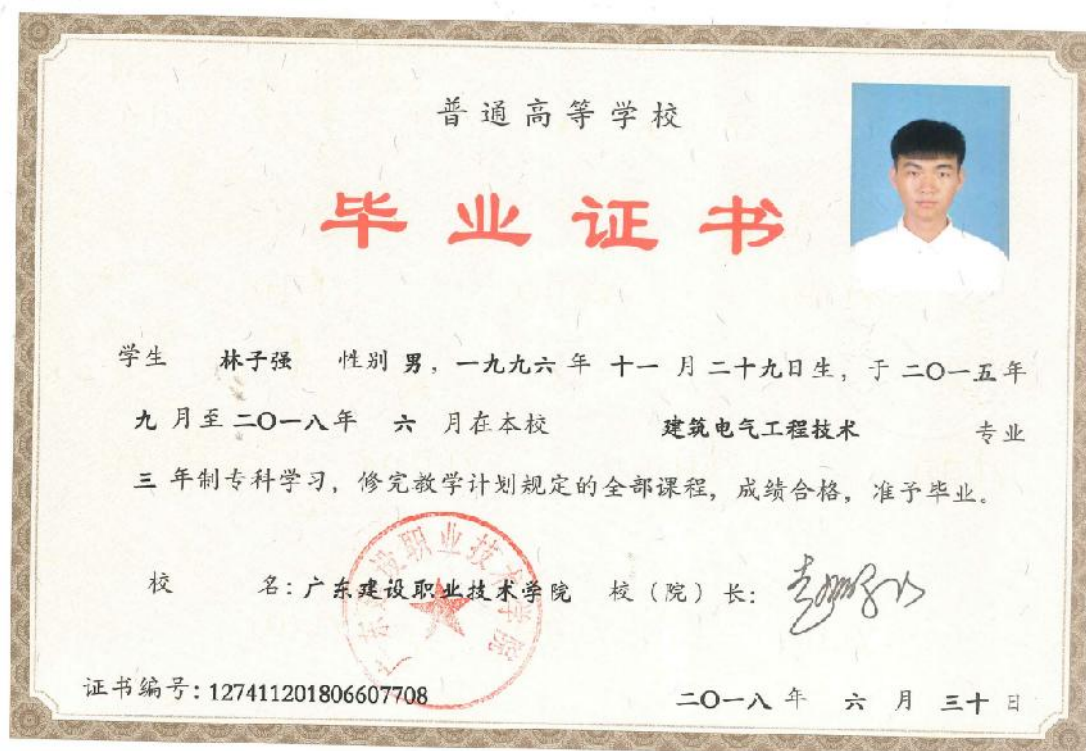 普通高等学校
毕业证书
学生 林子强 性别 男，一九九六 年 十一 月 二十九日生，于 二〇一五年
九 月至 二〇一八年 六 月在本校 建筑电气工程技术 专业
三 年制专科学习，修完教学计划规定的全部课程，成绩合格，准予毕业。
广东建设职业技术学院
校 名：广东建设职业技术学院 校（院）长：
证书编号：127411201806607708
二〇一八 年 六 月 三十 日